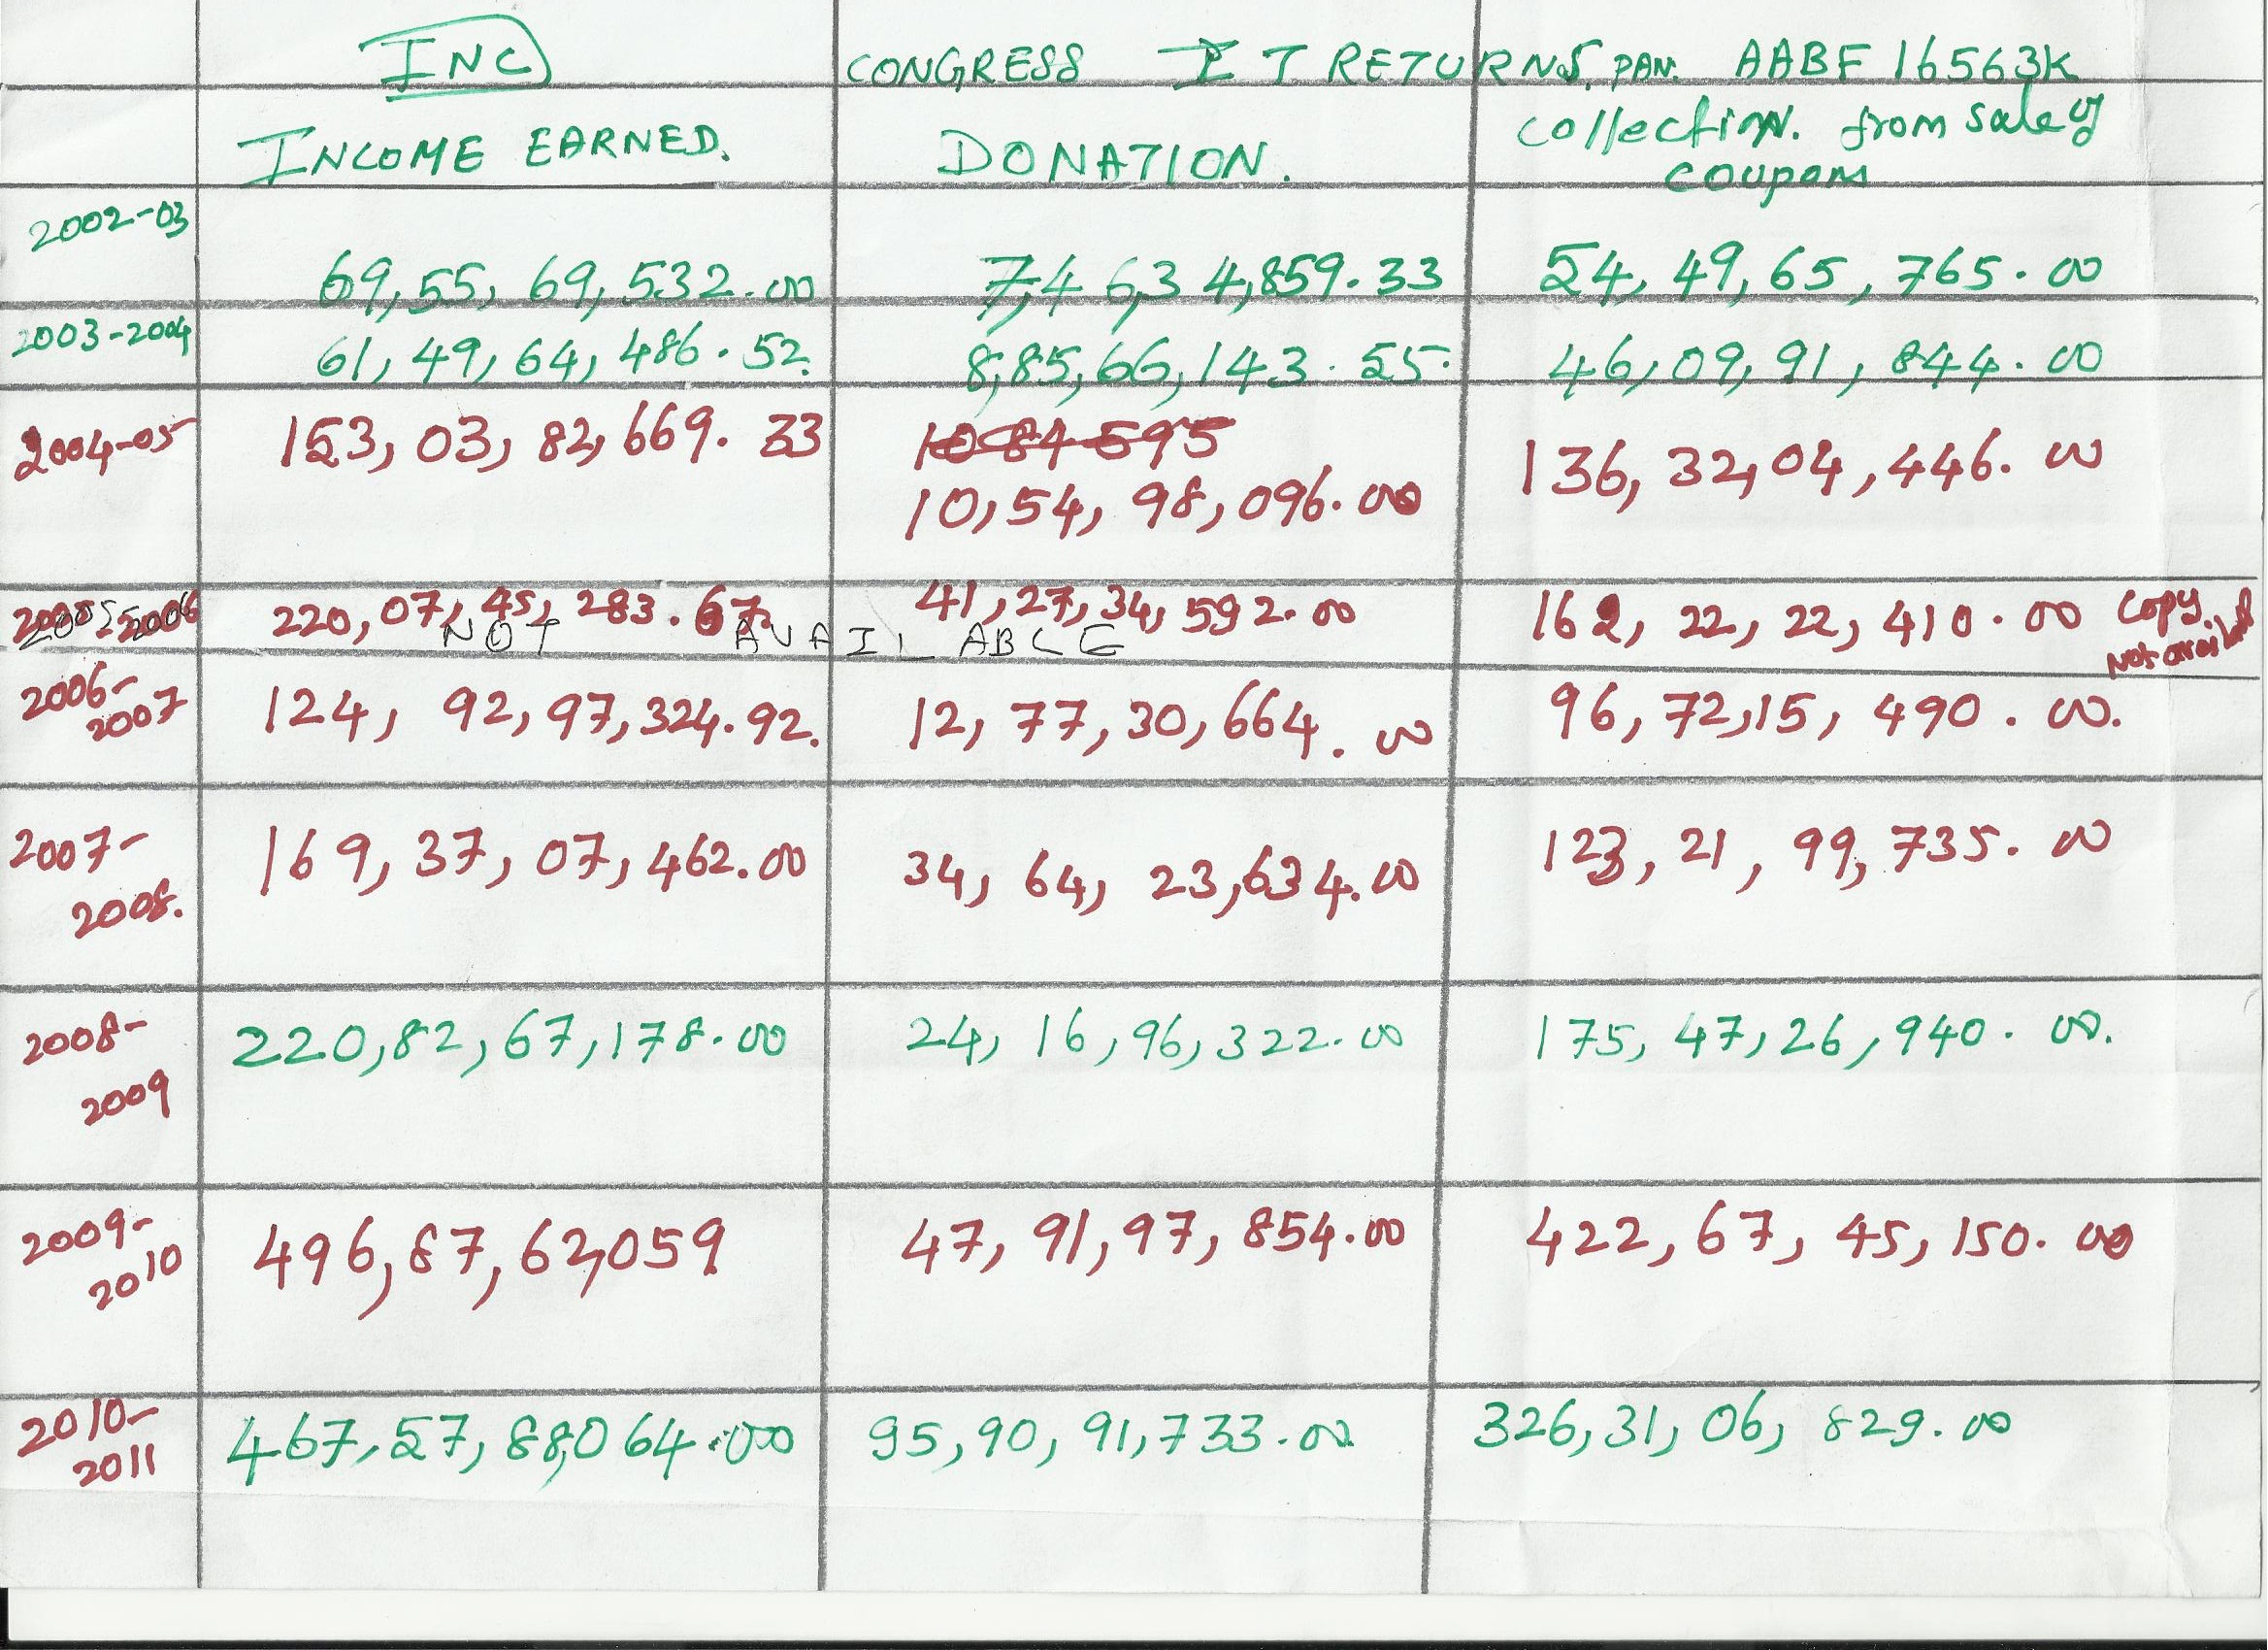 INC CONGRESS I T RETURNS, PAN. AABF 16563K
INCOME EARNED. DONATION. Collection. from sale of
coupons
2002-03
69,55,69,532.00 7,46,34,859.33 54,49,65,765.00
2003-2004 61,49,64,486.52 8,85,66,143.55 46,09,91,844.00
2004-05 153,03,82,669.33 1084595 136,32,04,446.00
10,54,98,096.00
2005-2006 220,07,45,283.67 41,27,34,592.00 162,22,22,410.00 copy.
NOT AVAILABLE Not
2006-
2007 124,92,97,324.92. 12,77,30,664.00 96,72,15,490.00.
2007- 169,37,07,462.00 34,64,23,634.00 123,21,99,735.00
2008.
2008- 220,82,67,178.00 24,16,96,322.00 175,47,26,940.00.
2009
2009- 496,87,62,059 47,91,97,854.00 422,67,45,150.00
2010
2010- 467,57,88,064.00 95,90,91,733.00 326,31,06,829.00
2011